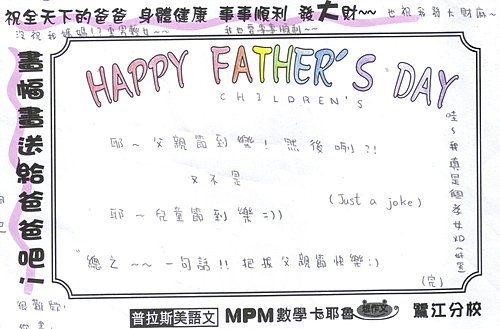 祝全天下的爸爸 身體健康 事事順利 發大財~~ 也祝我發大財麻~
沒祝到媽媽!?重男輕女~~ 我也要事事順利~~
畫幅畫送給爸爸吧!!
HAPPY FATHER'S DAY
CHILDREN'S
耶~父親節到樂! 然後咧?!
又不是
(Just a joke)
耶~兒童節到樂=))
總之~~一句話!! 把拔父親節快樂:)
(完)
哇~我真是個孝女XD
很難耶!
普拉斯美語文 MPM數學卡耶魯 超作文 鷺江分校